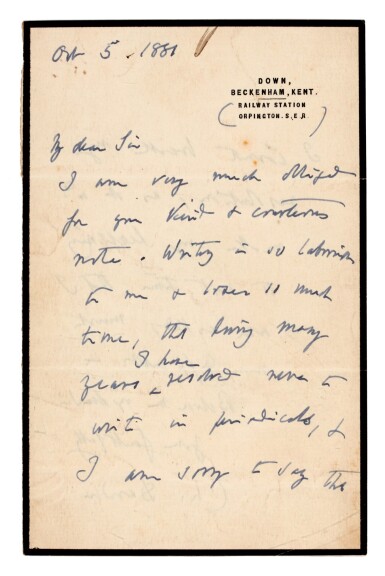 Oct 5. 1881
DOWN,
BECKENHAM, KENT.
RAILWAY STATION
ORPINGTON. S.E.R.
My dear Sir
I am very much obliged
for your kind & courteous
note. Writing is so laborious
to me & loses so much
time, that during many
I have
years resolved never to
write in periodicals, &
I am sorry to say that